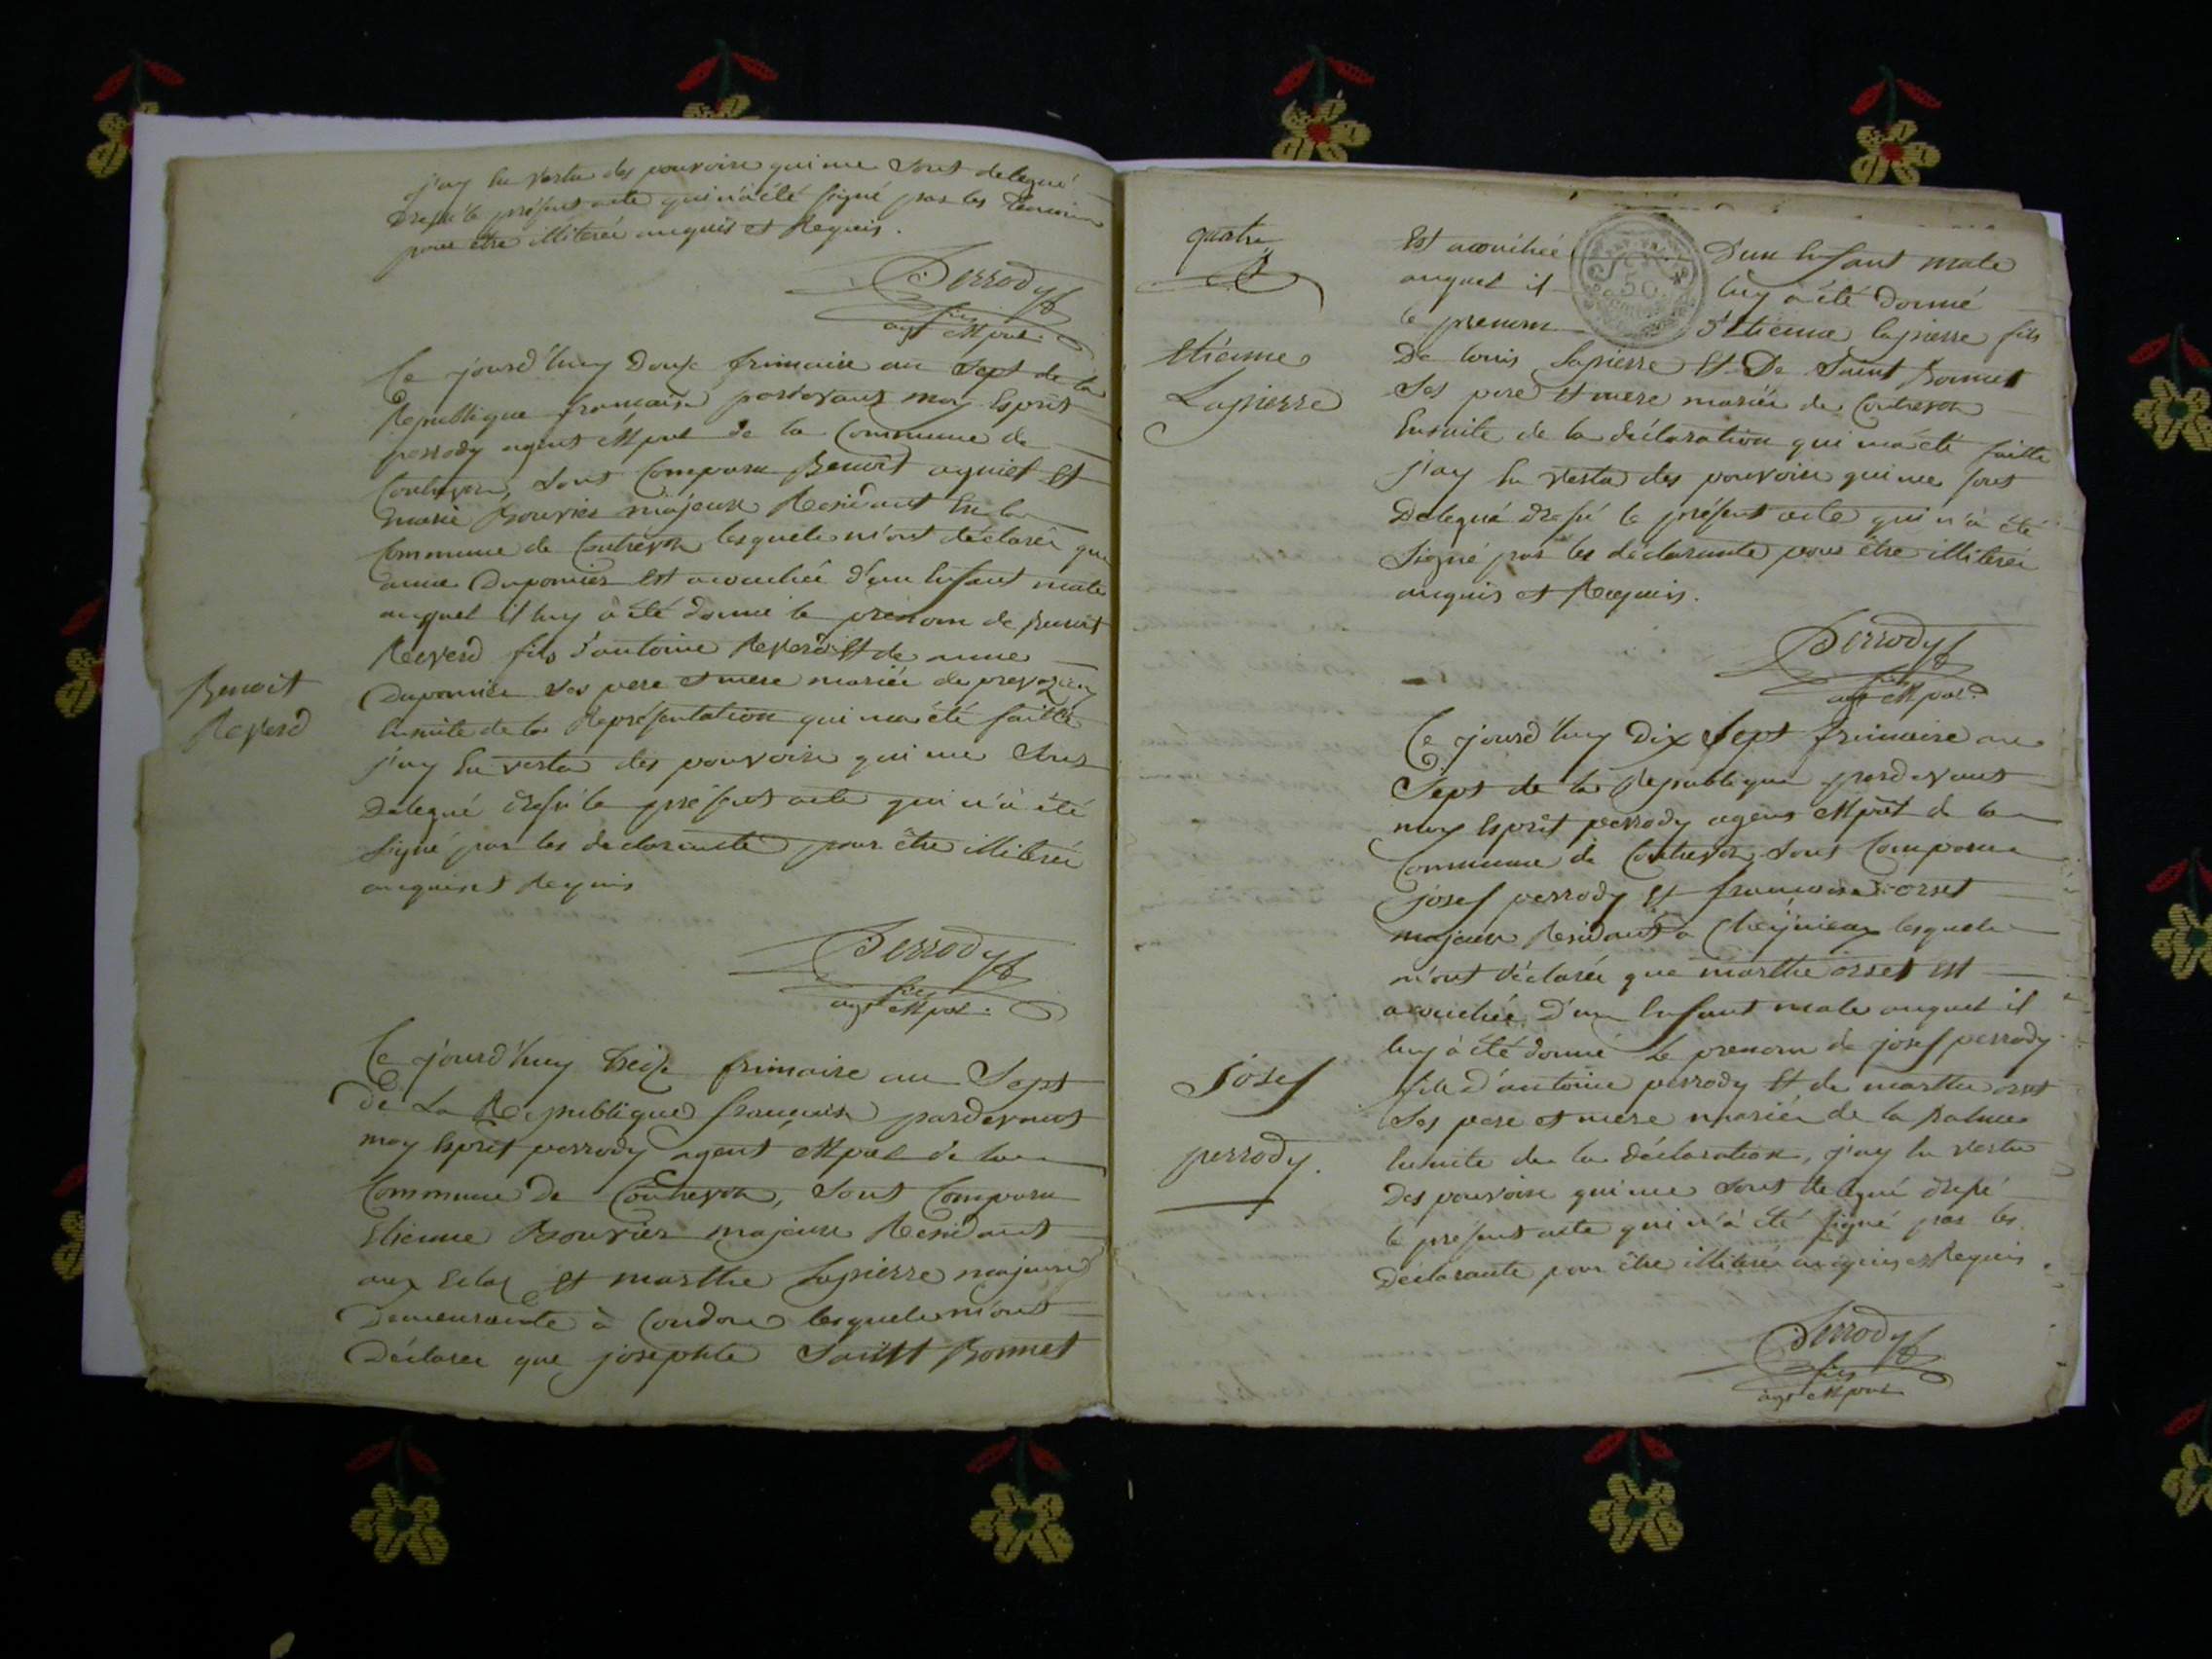 j'ay En Vertu des pouvoirs qui me Sont delegué
Dressé le présent acte qui n'a été signé par les temoins
pour être illiterés enquis et Requis.
Perrody
fils
agt Mpal.
Ce jourd'huy Douze frimaire an Sept de la
Republique francaise pardevant moy Esprit
perrody agent Mpal de la Commune de
Contrevoz, Sont Comparu Benoit aguiet Et
marie Bouvier majeurs Residant En la
Commune de Contrevoz lesquels m'ont déclaré que
anne Duponier Est acouchée d'un Enfant male
auquel il luy à été donné le prenom de Benoit
Reverd fils d'antoine Reverd Et de anne
Benoit
Reverd
Duponier Ses pere et mere mariés de
Ensuite de la Représentation qui ma été faitte
j'ay En vertu des pouvoirs qui me Sont
Delegué dressé le présent acte qui n'à été
Signé par les declarants pour être illiterés
enquis et Requis
Perrody
fils
agt Mpal.
Ce jourd'huy treize frimaire an Sept
De La République française pardevant
moy Esprit perrody agent Mpal de la
Commune De Contrevoz, Sont Comparu
Etienne Bouvier majeur Residant
aux Et marthe Lapierre majeure
Demeurante à Condon lesquels m'ont
Déclaré que josephte Saint Bonnet
quatre
Est acouchée D'un Enfant male
50
auquel il luy à été donné
le prenom d'Etienne lapierre fils
Etienne
Lapierre
De louis Lapierre Et De Saint Bonnet
Ses pere Et mere mariés de Contrevoz
Ensuite de la déclaration qui ma été faitte
j'ay En vertu des pouvoirs qui me sont
Delegué dressé le présent acte qui n'à été
Signé par les déclarants pour être illiterés
enquis et Requis.
Perrody
fils
agt Mpal.
Ce jourd'huy Dix Sept frimaire an
Sept de la Republique pardevant
moy Esprit perrody agens Mpal de la
Commune de Contrevoz Sont Comparu
josef perrody Et francoise orset
majeurs Residant a Cheignieux lesquels
m'ont déclaré que marthe orset Est
acouchée D'un Enfant male auquel il
luy à été donné Le prenom de josef perrody
josef
perrody.
fils d'antoine perrody Et de marthe orset
Ses pere et mere mariés de la palme
Ensuite de la déclaration, j'ay En Vertu
Des pouvoirs qui me Sont delegué dressé
le présent acte qui n'à été signé par les
Déclarants pour être illiterés enquis et Requis.
Perrody
fils
agt Mpal